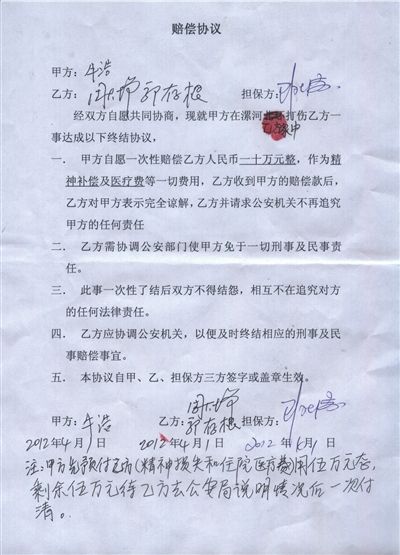 赔偿协议
甲方：牛浩
乙方： 郭存根 担保方：
经双方自愿共同协商，现就甲方在漯河北环打伤乙方一
事达成以下终结协议，
一． 甲方自愿一次性赔偿乙方人民币一十万元整，作为精
神补偿及医疗费等一切费用，乙方收到甲方的赔偿款后，
乙方对甲方表示完全谅解，乙方并请求公安机关不再追究
甲方的任何责任
二． 乙方需协调公安部门使甲方免于一切刑事及民事责
任。
三． 此事一次性了结后双方不得结怨，相互不在追究对方
的任何法律责任。
四． 乙方应协调公安机关，以便及时终结相应的刑事及民
事赔偿事宜。
五． 本协议自甲、乙、担保方三方签字或盖章生效。
甲方：牛浩 乙方： 郭存根 担保方：
2012年4月1日 2012年4月1日 2012年4月1日
注：甲方先预付乙方（精神损失和住院医疗费）用伍万元整，
剩余伍万元待乙方去公安局说明情况后一次付
清。